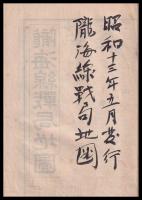 昭和十三年五月发行
隴海線戰局地图
隴海線戰局地圖